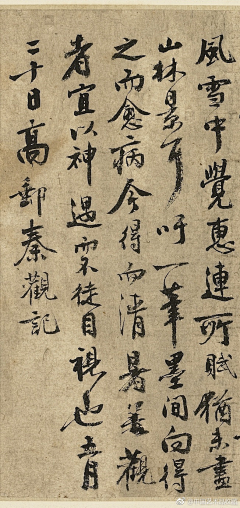 風雪中覺惠連所賦猶未盡
山林景耳吁一筆墨間向得
之而愈病今得而清暑善觀
者宜以神遇而不徒目視也五月
二十日高郵秦觀記